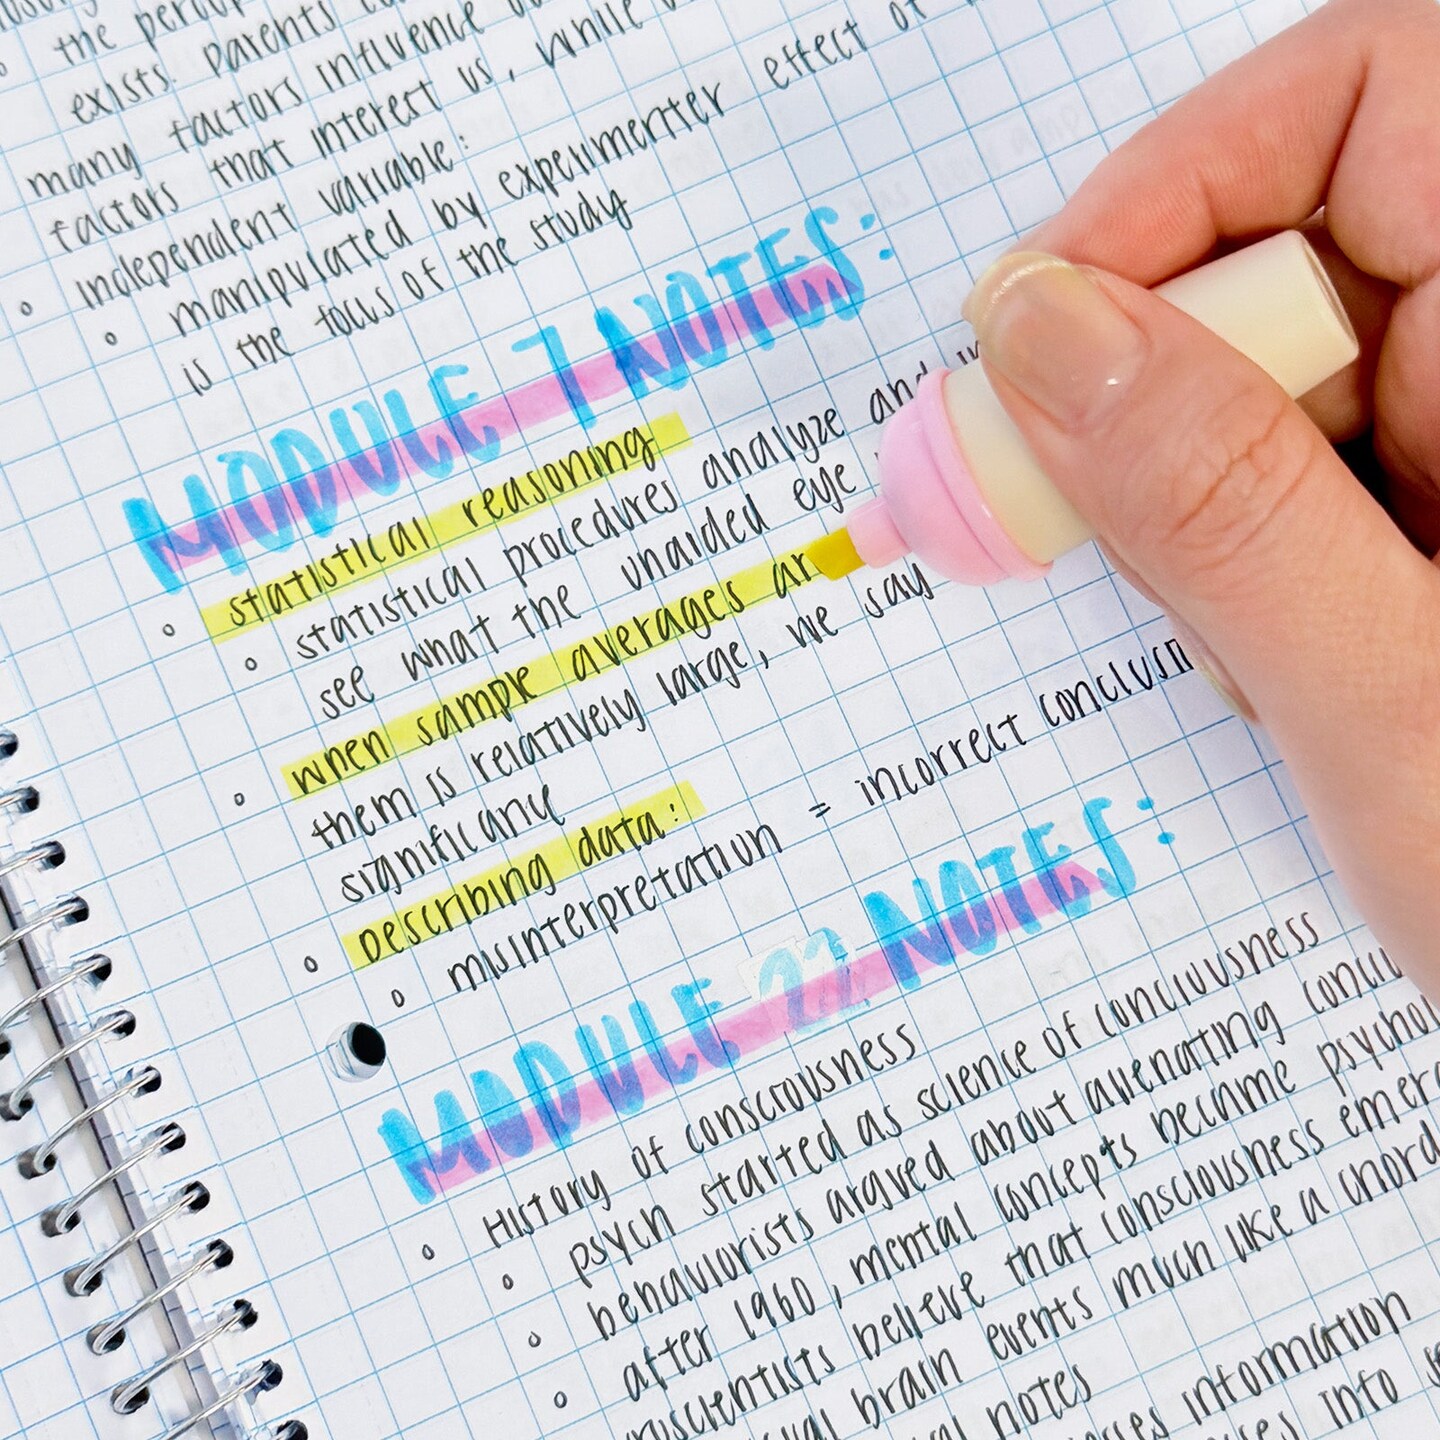 the percep
exists. Parents
many factors influence
factors that interest us, while
independent variable:
manipulated by experimenter effect of
is the focus of the study
MODULE 7 NOTES:
statistical reasoning
statistical procedures analyze and in
see what the unaided eye
when sample averages ar
them is relatively large, we say
significance
Describing data:
misinterpretation = incorrect conclusn
MODULE 22 NOTES:
History of consciousness
psych started as science of conciousness
behaviorists argued about alienating conciu
after 1960, mental concepts became psychol
believe that consciousness emerg
brain events much like a chord
notes
information
into